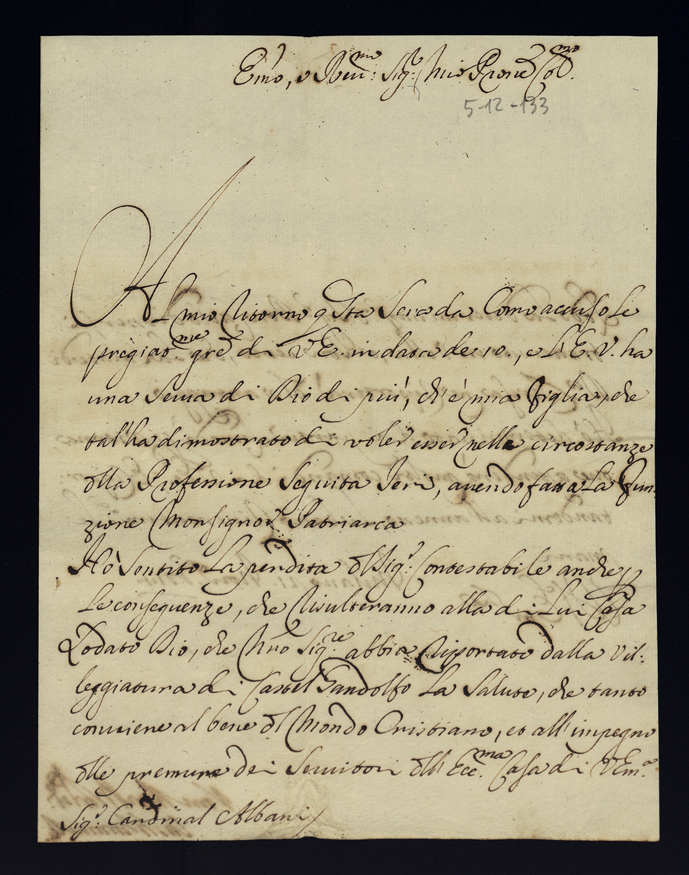 Em̃o, e Reu:mo Sig:r Mio Prone Col:mo
5-12-133
Al mio Ritorno qsta Sera da Como accuso le
pregiat:me gre di V.E. in data de 10., e l'E.V. ha
una Serua di Dio di più, ch'è mia Figlia, che
tal' ha dimostrato di voler esser nelle circostanze
dlla Professione Seguita Ieri, auendo fatta La Fun-
zione Monsignor Patriarca
Hò Sentito La perdita dl Sig:r Contestabile anche p
Le conseguenze, che Risulteranno alla di Lui Casa
Lodato Dio, che Nro Sig:re abbia Riportato dalla Vil-
leggiatura di Castel Gandolfo La Salute, che tanto
conuiene al bene dl Mondo Cristiano, et all'impegno
dlle premure dei Seruitori dll' Ecc:ma Casa di V.Em:a
Sig:r Cardinal Albani